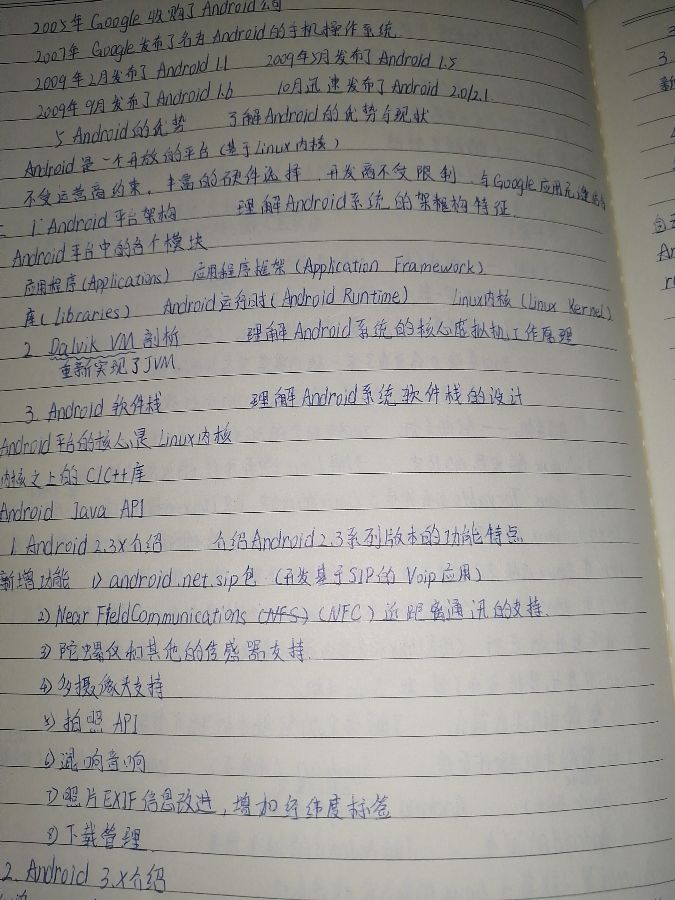 2005年 Google 收购了Android公司
2007年 Google发布了名为Android的手机操作系统
2009年2月发布了Android 1.1 2009年5月发布了Android 1.5
2009年9月发布了Android 1.6 10月迅速发布了Android 2.0/2.1
5 Android的优势 了解Android的优势与现状
Android是一个开放的平台(基于Linux内核)
不受运营商约束,丰富的硬件选择,开发商不受限制,与Google应用无缝结合
二 1.Android平台架构 理解Android系统的架框构特征
Android平台中的各个模块
应用程序(Applications) 应用程序框架(Application Framework)
库(Libraries) Android运行时(Android Runtime) Linux内核(Linux Kernel)
2 Dalvik VM剖析 理解Android系统的核心虚拟机工作原理
重新实现了JVM
3. Android软件栈 理解Android系统软件栈的设计
Android平台的核心是Linux内核
内核之上的C/C++库
Android Java API
1. Android 2.3x介绍 介绍Android2.3系列版本的功能特点
新增功能 1) android.net.sip包 (开发基于SIP的Voip应用)
2) Near FieldCommunications (NFS) (NFC)近距离通讯的支持.
3) 陀螺仪和其他的传感器支持.
4) 多摄像头支持
5) 拍照API
6) 混响音响
7) 照片EXIF信息改进,增加经纬度标签
8) 下载管理
2. Android 3.x介绍